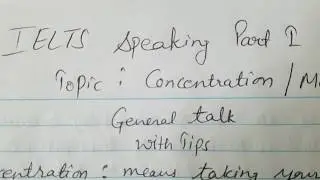 IELTS Speaking Part 1
Topic : Concentration /
General talk
with Tips
means taking your